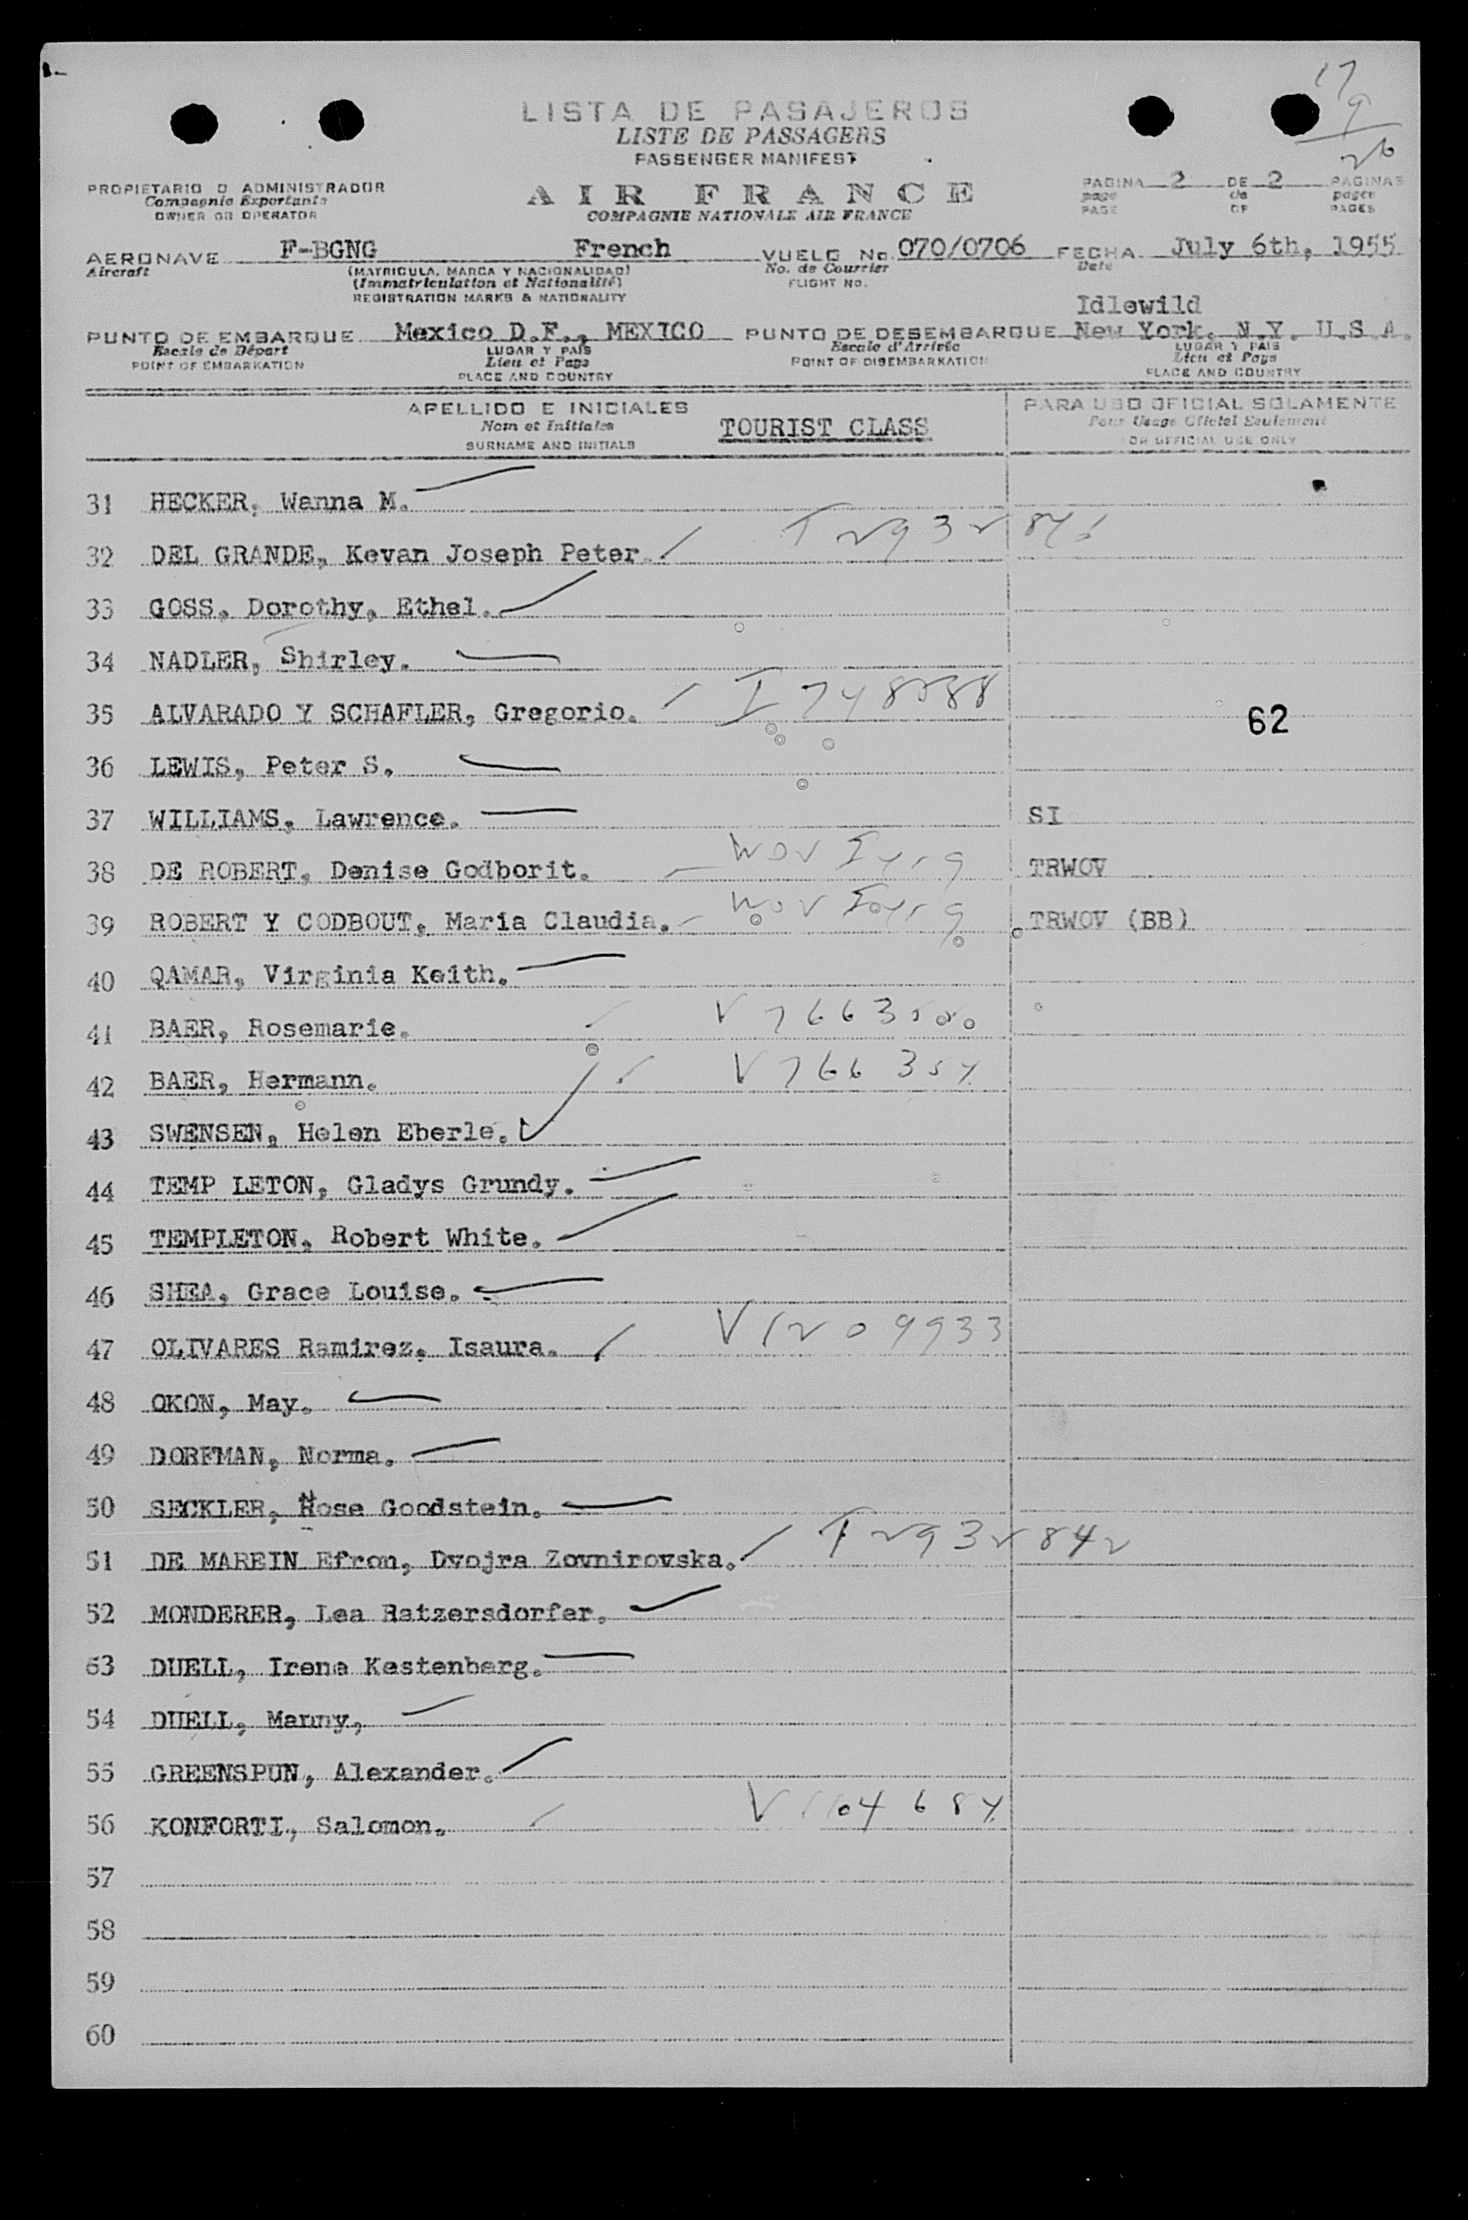 17
9
26
LISTA DE PASAJEROS
LISTE DE PASSAGERS
PASSENGER MANIFEST
PROPIETARIO O ADMINISTRADOR
Compagnie Exportante
OWNER OR OPERATOR
AIR FRANCE
COMPAGNIE NATIONALE AIR FRANCE
PAGINA 2 DE 2 PAGINAS
page de pages
PAGE OF PAGES
AERONAVE F-BGNG French VUELO No. 070/0706 FECHA July 6th, 1955
Aircraft (MATRICULA, MARCA Y NACIONALIDAD) No. de Courrier Date
(Immatriculation et Nationalité) FLIGHT NO.
REGISTRATION MARKS & NATIONALITY
Idlewild
PUNTO DE EMBARQUE Mexico D.F., MEXICO PUNTO DE DESEMBARQUE New York, N.Y. U.S.A.
Escale de Départ LUGAR Y PAIS Escale d'Arrivée LUGAR Y PAIS
POINT OF EMBARKATION Lieu et Pays POINT OF DISEMBARKATION Lieu et Pays
PLACE AND COUNTRY PLACE AND COUNTRY
APELLIDO E INICIALES PARA USO OFICIAL SOLAMENTE
Nom et Initiales TOURIST CLASS Pour Usage Officiel Seulement
SURNAME AND INITIALS FOR OFFICIAL USE ONLY
31 HECKER, Wanna M.
32 DEL GRANDE, Kevan Joseph Peter.
33 GOSS, Dorothy, Ethel.
34 NADLER, Shirley.
35 ALVARADO Y SCHAFLER, Gregorio. 62
36 LEWIS, Peter S.
37 WILLIAMS, Lawrence. SI
38 DE ROBERT, Denise Godborit. WOV TRWOV
39 ROBERT Y CODBOUT, Maria Claudia. WOV TRWOV (BB)
40 QAMAR, Virginia Keith.
41 BAER, Rosemarie.
42 BAER, Hermann.
43 SWENSEN, Helen Eberle.
44 TEMP LETON, Gladys Grundy.
45 TEMPLETON, Robert White.
46 SHEA, Grace Louise.
47 OLIVARES Ramirez, Isaura. V1209933
48 OKON, May.
49 DORFMAN, Norma.
50 SECKLER, Rose Goodstein.
51 DE MAREIN Efron, Dvojra Zovnirovska. T2932842
52 MONDERER, Lea Ratzersdorfer.
53 DUELL, Irene Kestenberg.
54 DUELL, Manny,
55 GREENSPUN, Alexander.
56 KONFORTI, Salomon.
57
58
59
60